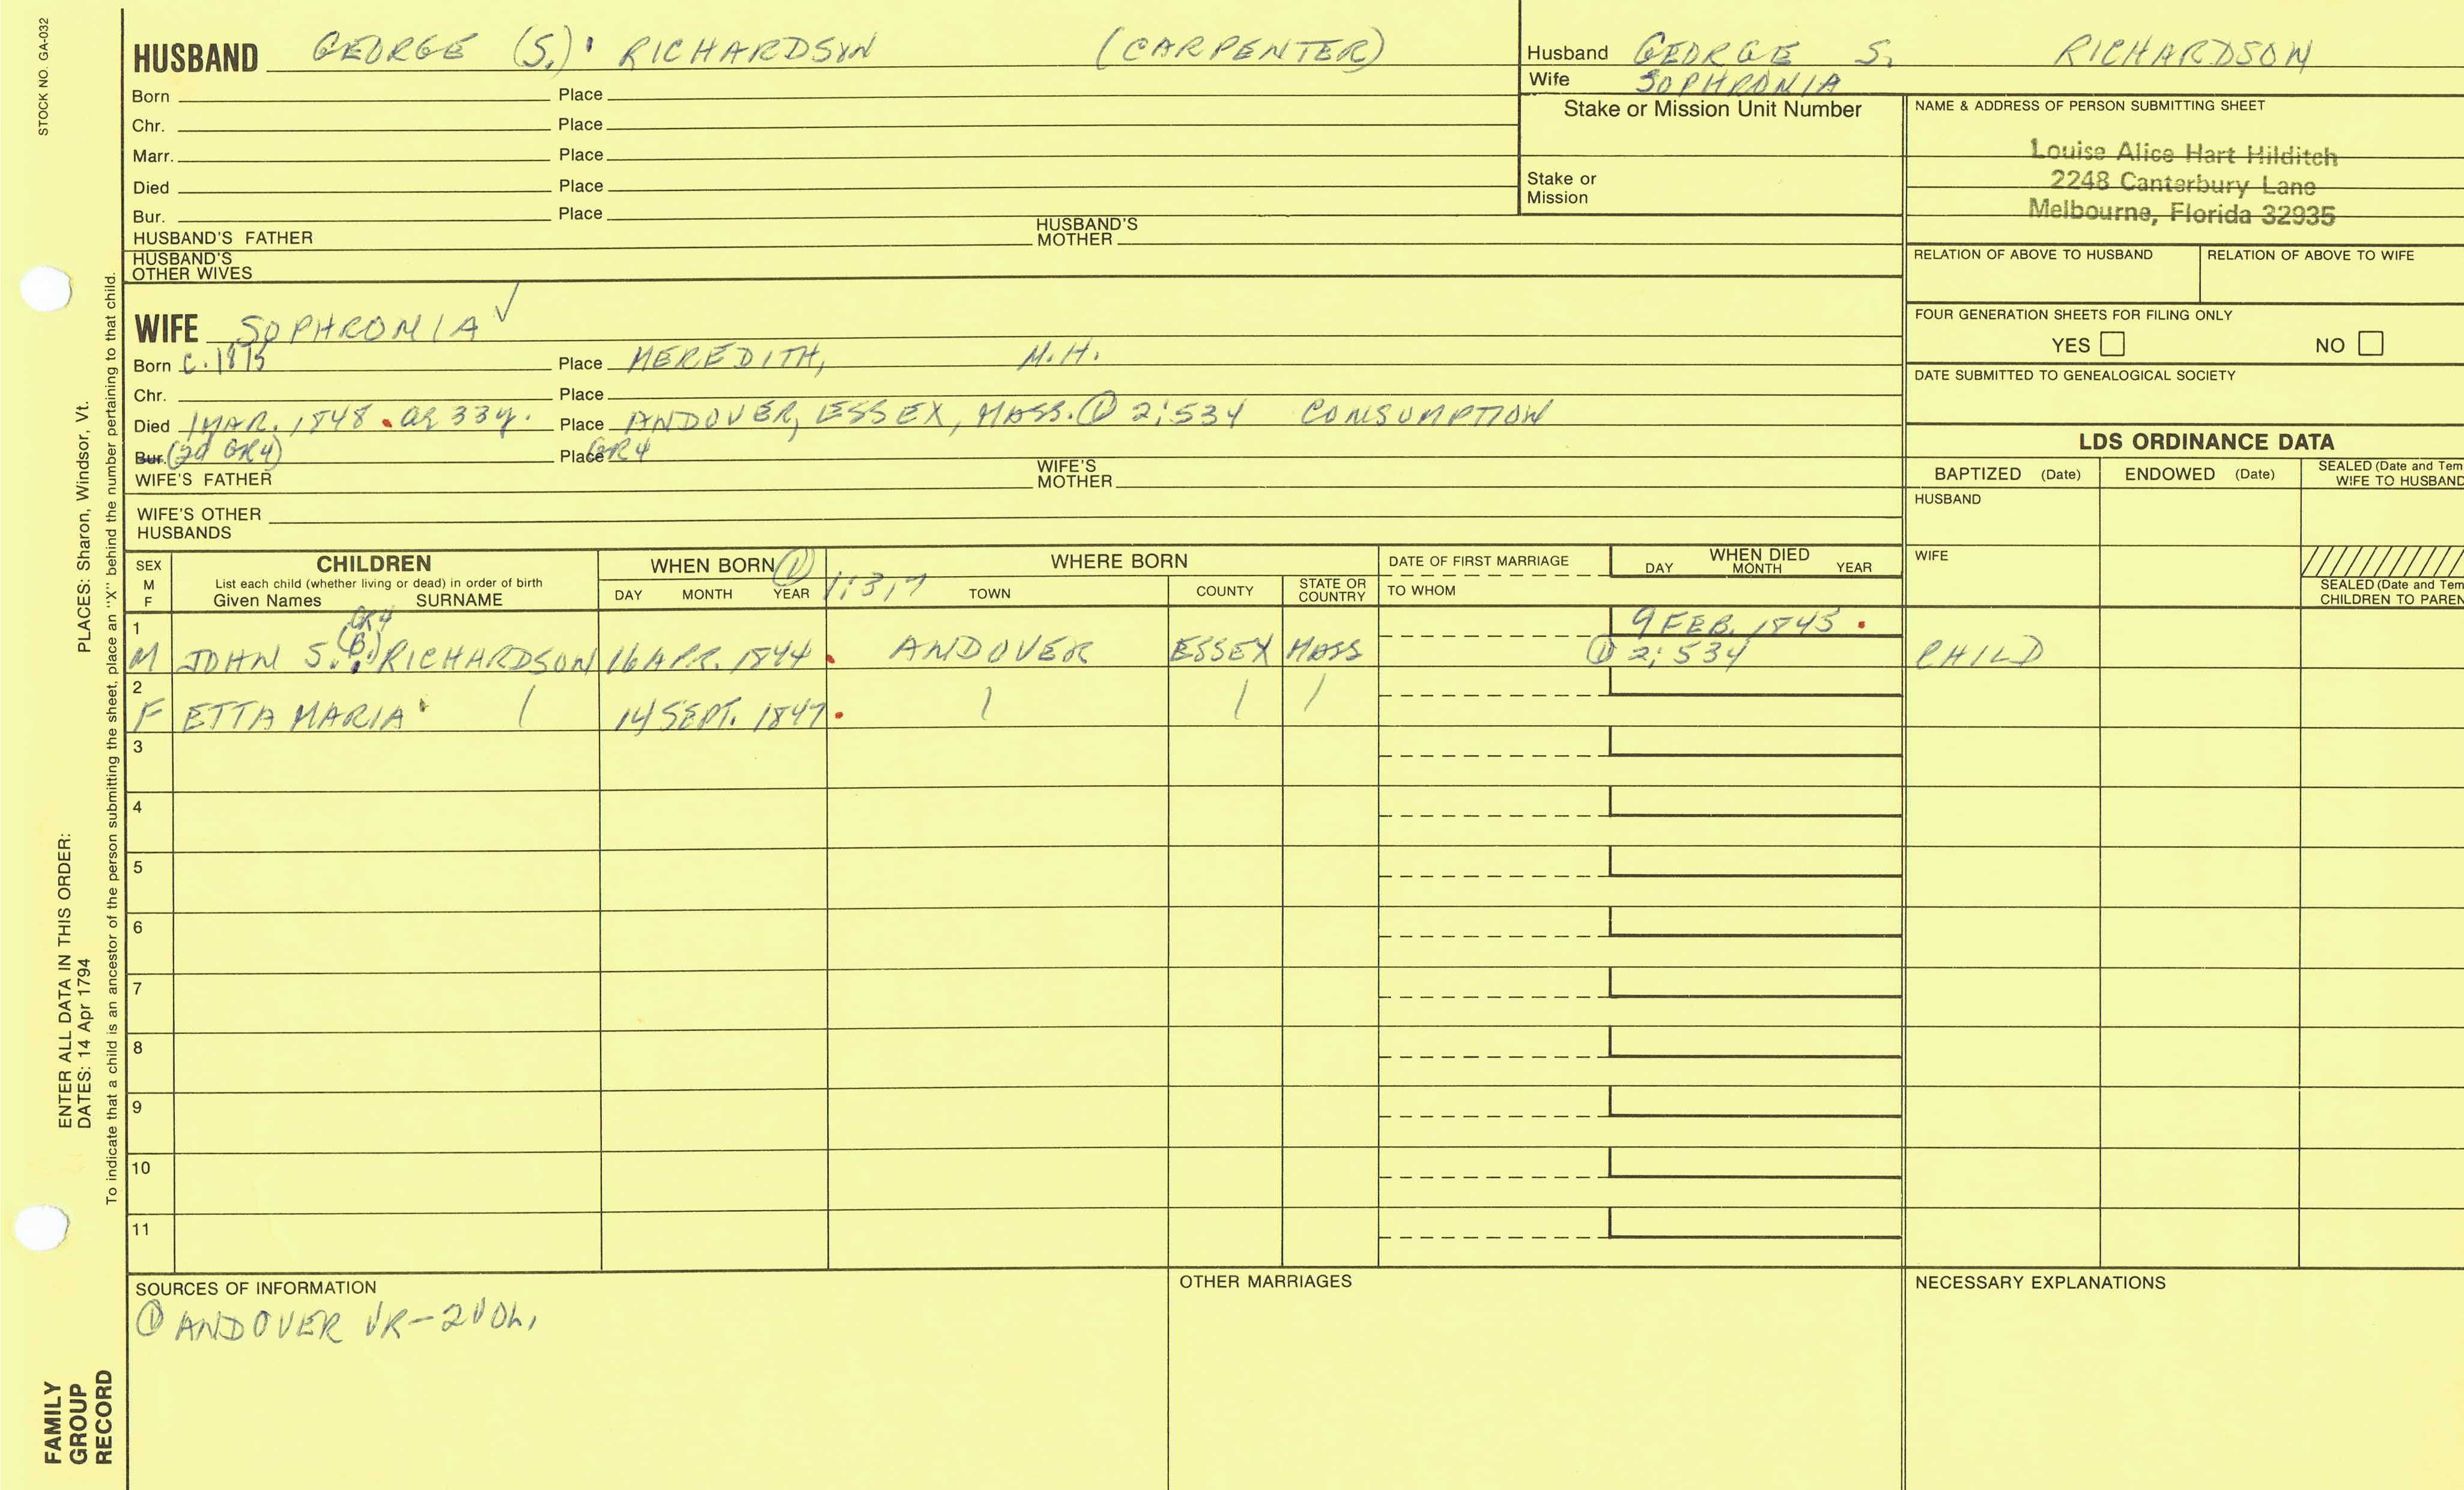 STOCK NO. GA-032
HUSBAND GEORGE (S.) RICHARDSON (CARPENTER)
Born Place
Chr. Place
Marr. Place
Died Place
Bur. Place
HUSBAND'S FATHER HUSBAND'S MOTHER
HUSBAND'S OTHER WIVES
Husband GEORGE S. RICHARDSON
Wife SOPHRONIA
Stake or Mission Unit Number
Stake or Mission
NAME & ADDRESS OF PERSON SUBMITTING SHEET
Louise Alice Hart Hilditch
2248 Canterbury Lane
Melbourne, Florida 32935
RELATION OF ABOVE TO HUSBAND RELATION OF ABOVE TO WIFE
FOUR GENERATION SHEETS FOR FILING ONLY
YES NO
DATE SUBMITTED TO GENEALOGICAL SOCIETY
WIFE SOPHRONIA ✓
Born c. 1815 Place MEREDITH, N.H.
Chr. Place
Died 1 MAR. 1848. ae 33y. Place ANDOVER, ESSEX, MASS. ① 2:534 CONSUMPTION
Bur. (2d GR4) Place GR4
WIFE'S FATHER WIFE'S MOTHER
WIFE'S OTHER HUSBANDS
LDS ORDINANCE DATA
BAPTIZED (Date) ENDOWED (Date) SEALED (Date and Tem
WIFE TO HUSBAND
HUSBAND
WIFE
SEALED (Date and Tem
CHILDREN TO PAREN
SEX M F CHILDREN WHEN BORN ① 1:3,7 WHERE BORN DATE OF FIRST MARRIAGE WHEN DIED
List each child (whether living or dead) in order of birth
Given Names SURNAME DAY MONTH YEAR TOWN COUNTY STATE OR COUNTRY TO WHOM DAY MONTH YEAR
GR4
1 M JOHN S. (B.) RICHARDSON 16 APR. 1844. ANDOVER ESSEX MASS 9 FEB. 1845. ① 2:534 CHILD
2 F ETTA MARIA 14 SEPT. 1847.
3
4
5
6
7
8
9
10
11
SOURCES OF INFORMATION
① ANDOVER VR-2 VOL.
OTHER MARRIAGES
NECESSARY EXPLANATIONS
ENTER ALL DATA IN THIS ORDER:
DATES: 14 Apr 1794
PLACES: Sharon, Windsor, Vt.
To indicate that a child is an ancestor of the person submitting the sheet, place an "X" behind the number pertaining to that child.
FAMILY
GROUP
RECORD